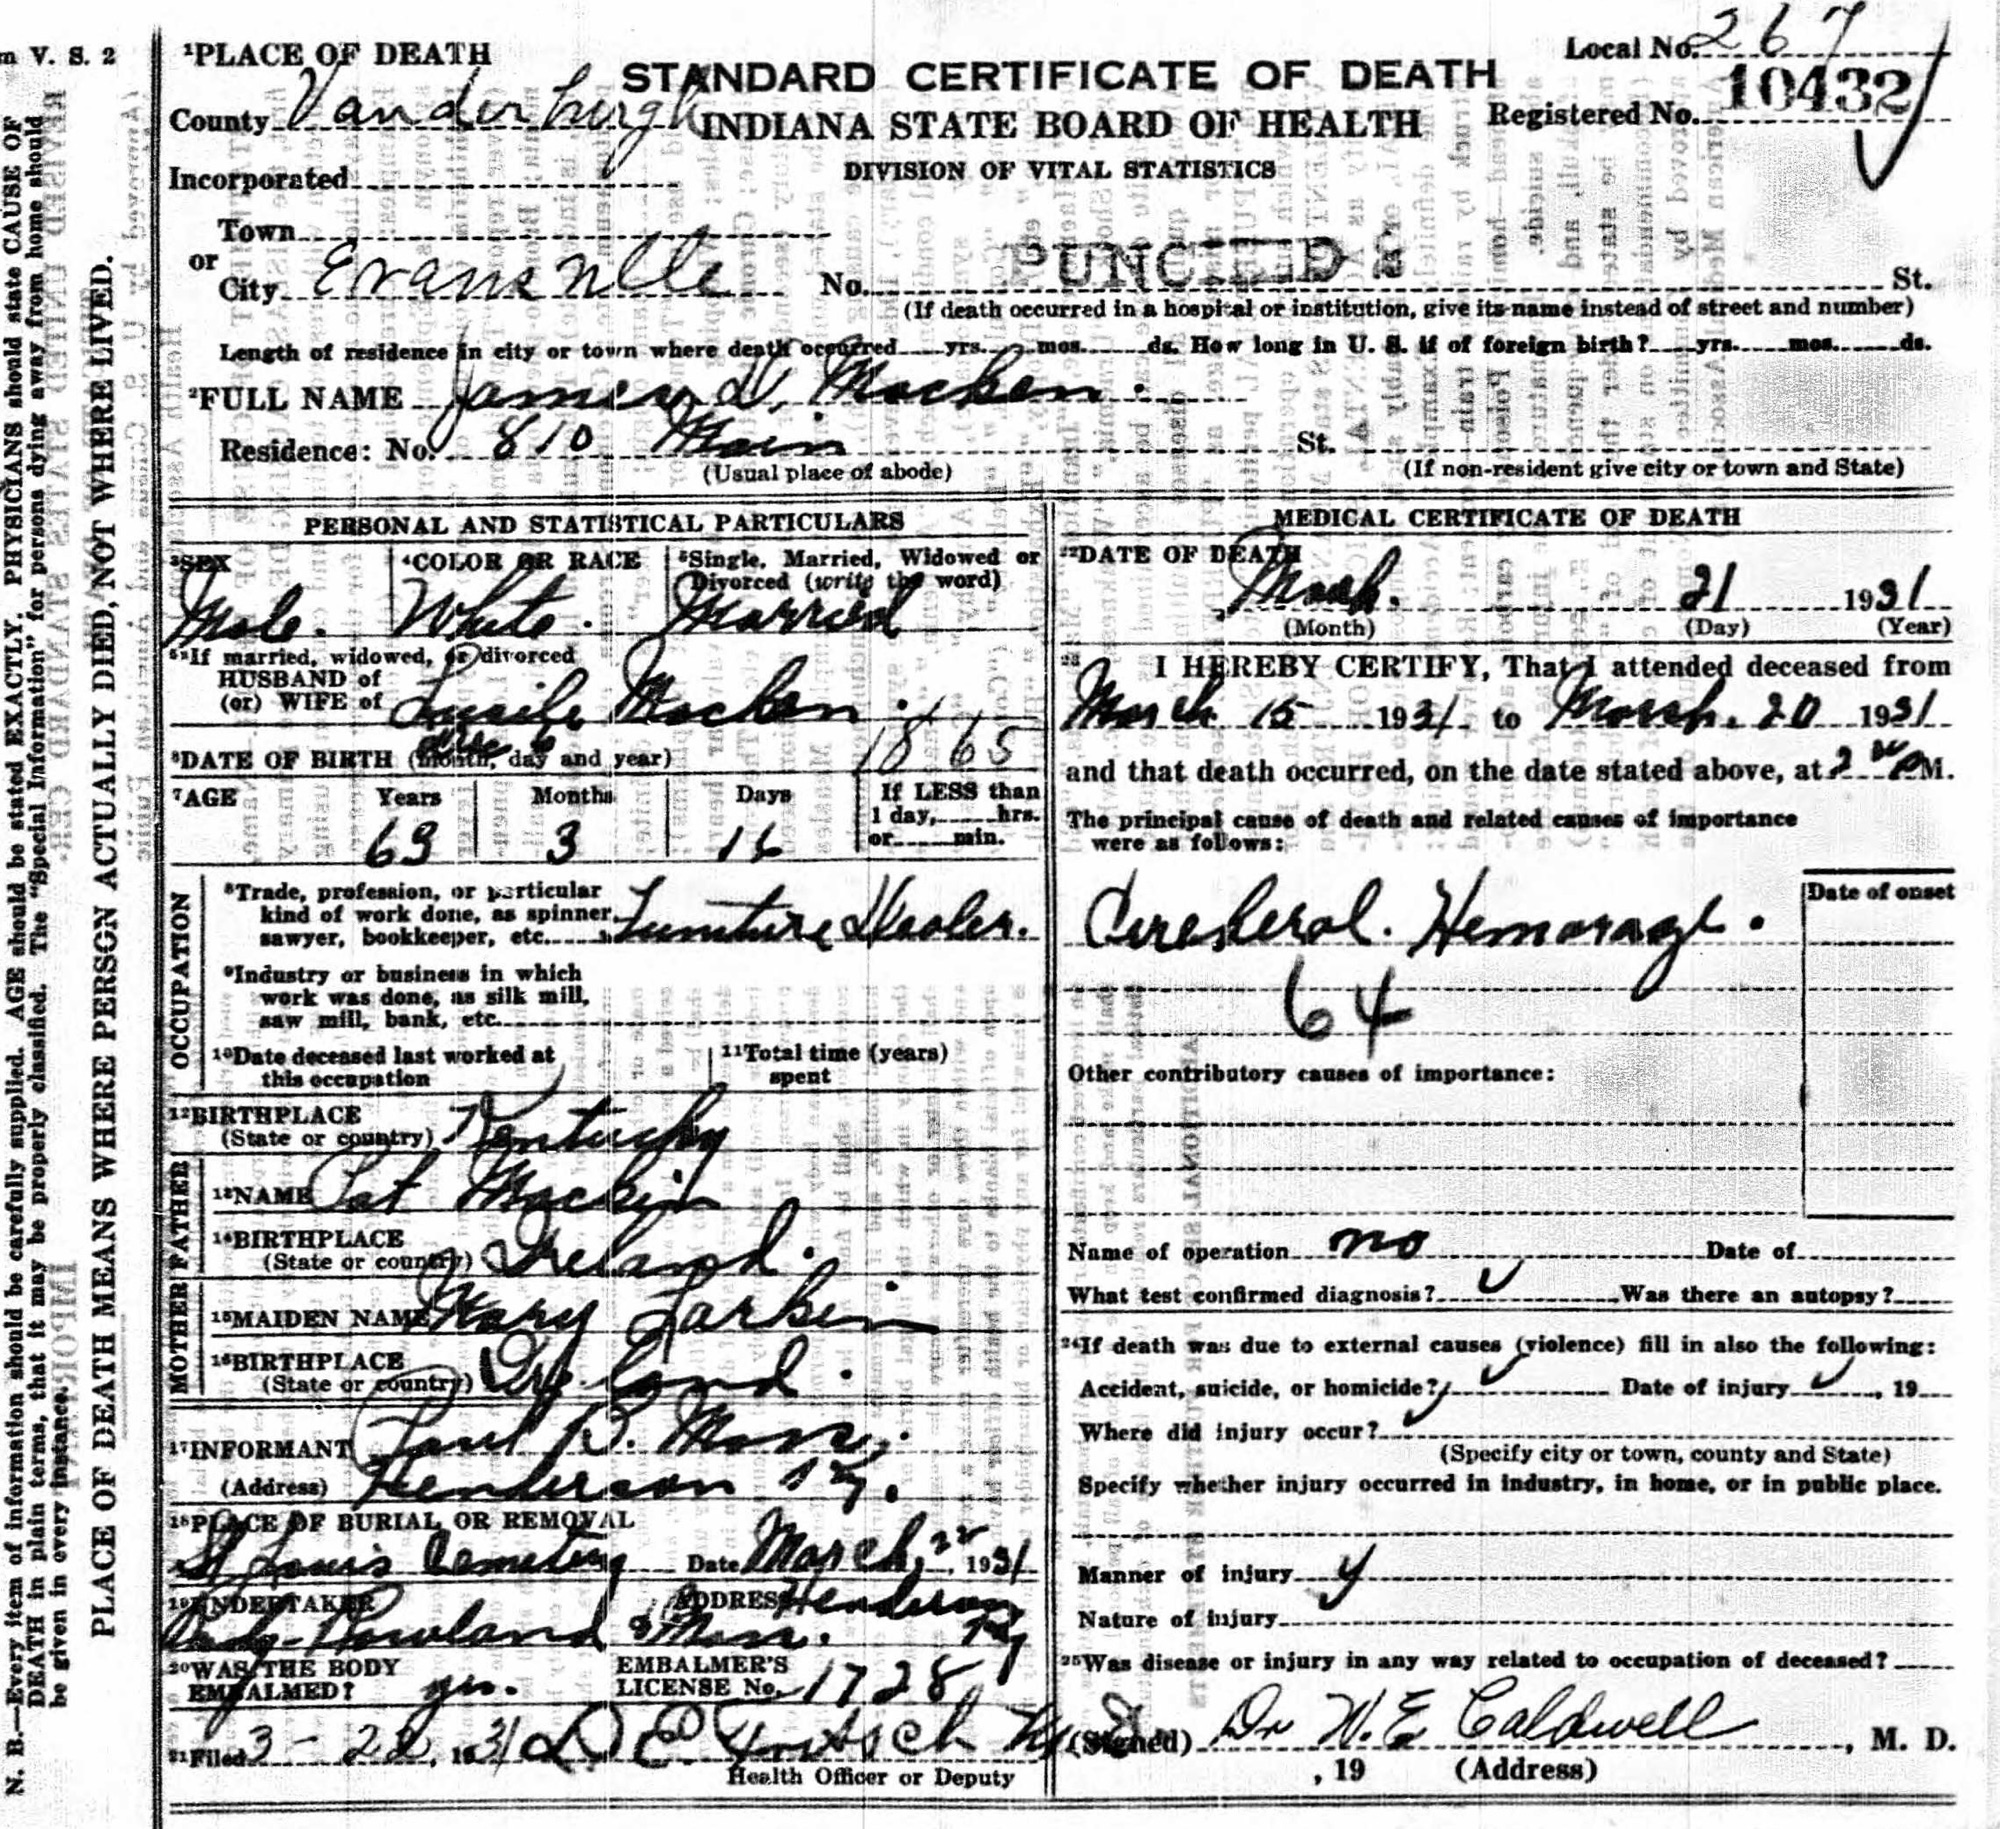 m V. S. 2
N. B.—Every item of information should be carefully supplied. AGE should be stated EXACTLY. PHYSICIANS should state CAUSE OF
DEATH in plain terms, that it may be properly classified. The "Special Information" for persons dying away from home should
be given in every instance.
PLACE OF DEATH MEANS WHERE PERSON ACTUALLY DIED, NOT WHERE LIVED.
Local No. 267
1PLACE OF DEATH
STANDARD CERTIFICATE OF DEATH
Registered No. 10432
County Vanderburgh
INDIANA STATE BOARD OF HEALTH
Incorporated
DIVISION OF VITAL STATISTICS
Town
or
PUNCHED
City Evansville No. St.
(If death occurred in a hospital or institution, give its name instead of street and number)
Length of residence in city or town where death occurred yrs. mos. ds. How long in U. S. if of foreign birth? yrs. mos. ds.
2FULL NAME James V. Macken.
Residence: No. 810 Main St.
(Usual place of abode) (If non-resident give city or town and State)
PERSONAL AND STATISTICAL PARTICULARS
3SEX 4COLOR OR RACE 5Single, Married, Widowed or
Divorced (write the word)
Male. White. Married
5aIf married, widowed, or divorced
HUSBAND of
(or) WIFE of Lucile Macken.
6DATE OF BIRTH (month, day and year) 1865
7AGE Years Months Days If LESS than
1 day, hrs.
or min.
63 3 16
OCCUPATION
8Trade, profession, or particular
kind of work done, as spinner,
sawyer, bookkeeper, etc. Furniture Dealer.
9Industry or business in which
work was done, as silk mill,
saw mill, bank, etc.
10Date deceased last worked at
this occupation
11Total time (years)
spent
12BIRTHPLACE
(State or country) Kentucky
FATHER
13NAME Pat Mackin
14BIRTHPLACE
(State or country) Ireland.
MOTHER
15MAIDEN NAME Mary Larkin
16BIRTHPLACE
(State or country) Ireland.
17INFORMANT Paul B. Moss.
(Address) Henderson Ky.
18PLACE OF BURIAL OR REMOVAL
St Louis Cemetery Date March 22 1931
19UNDERTAKER ADDRESS Henderson
Rowland & Moss. Ky
20WAS THE BODY
EMBALMED? yes.
EMBALMER'S
LICENSE No. 1728
21Filed 3-22, 1931
Health Officer or Deputy
MEDICAL CERTIFICATE OF DEATH
22DATE OF DEATH
March. 21 1931
(Month) (Day) (Year)
23 I HEREBY CERTIFY, That I attended deceased from
March 15 1931 to March. 20 1931
and that death occurred, on the date stated above, at 2 P M.
The principal cause of death and related causes of importance
were as follows:
Date of onset
Cerebral. Hemorage.
64
Other contributory causes of importance:
Name of operation no Date of
What test confirmed diagnosis? Was there an autopsy?
24If death was due to external causes (violence) fill in also the following:
Accident, suicide, or homicide? Date of injury , 19
Where did injury occur?
(Specify city or town, county and State)
Specify whether injury occurred in industry, in home, or in public place.
Manner of injury
Nature of injury
25Was disease or injury in any way related to occupation of deceased?
(Signed) Dr W. E Caldwell, M. D.
, 19 (Address)